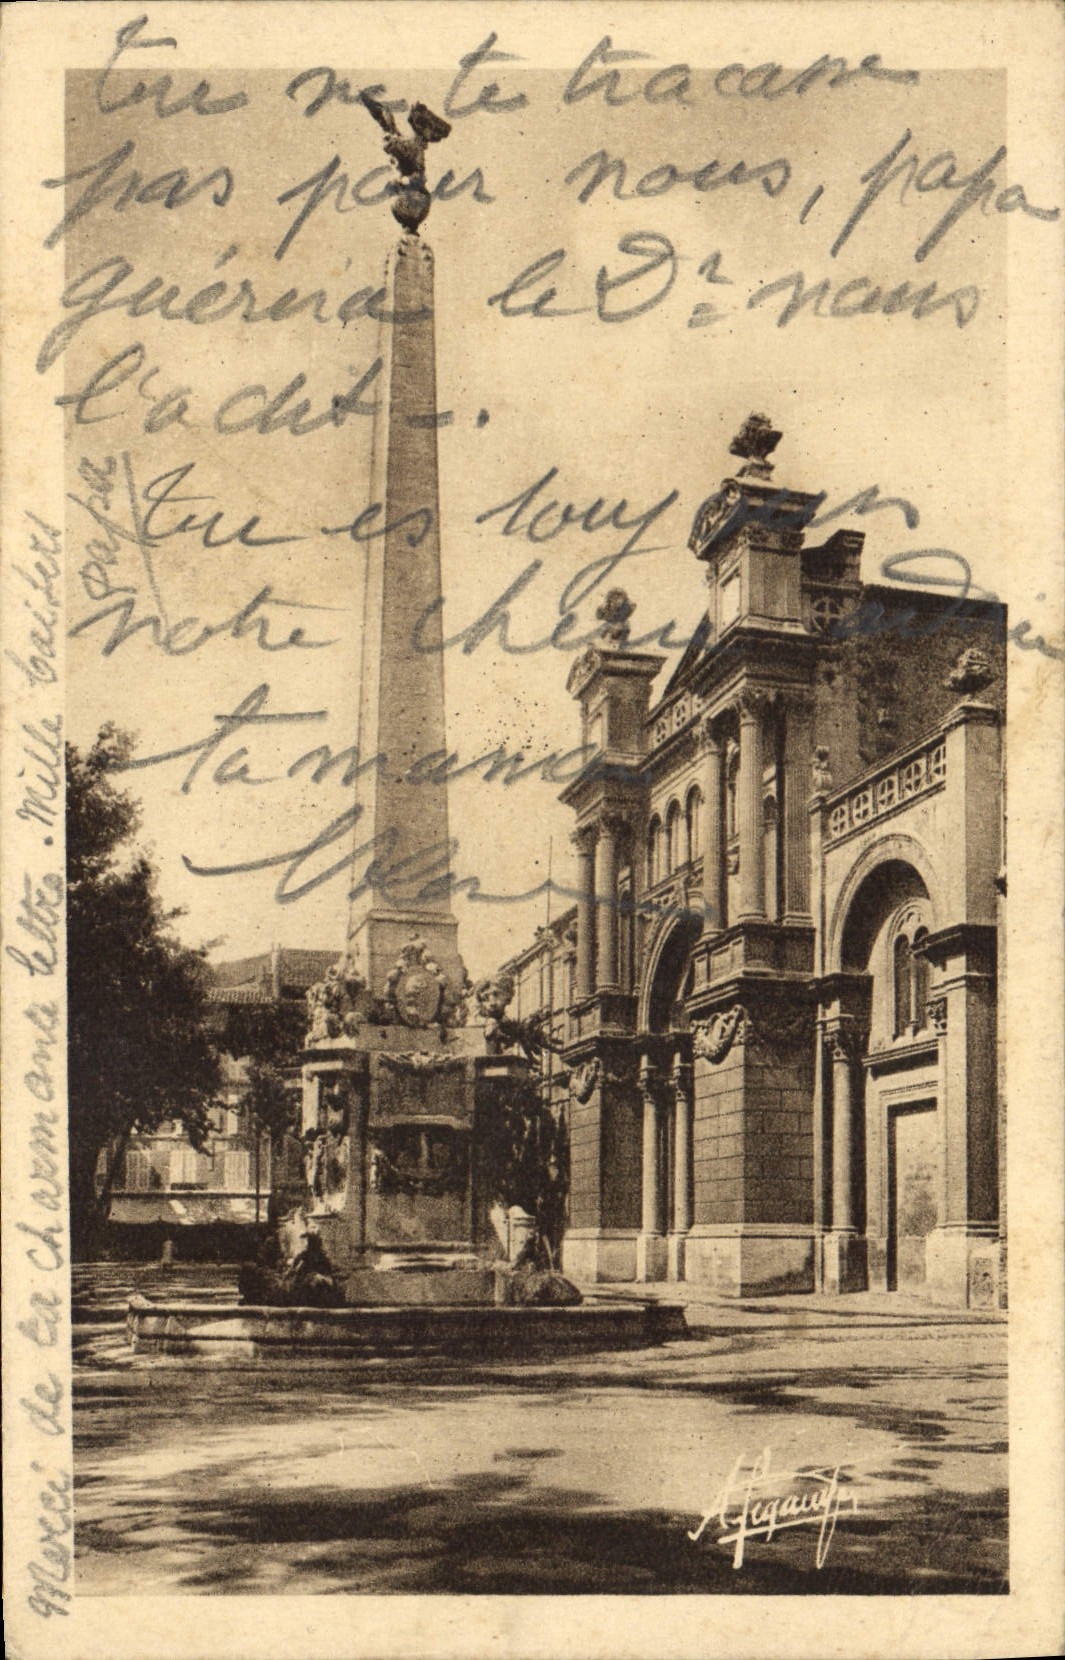 tu ne te tracasse
pas pour nous, papa
guérira le Dr nous
l'a dit —.
tu es toujours
notre chéri
ta maman
Merci de ta charmante lettre. Mille baisers
papa